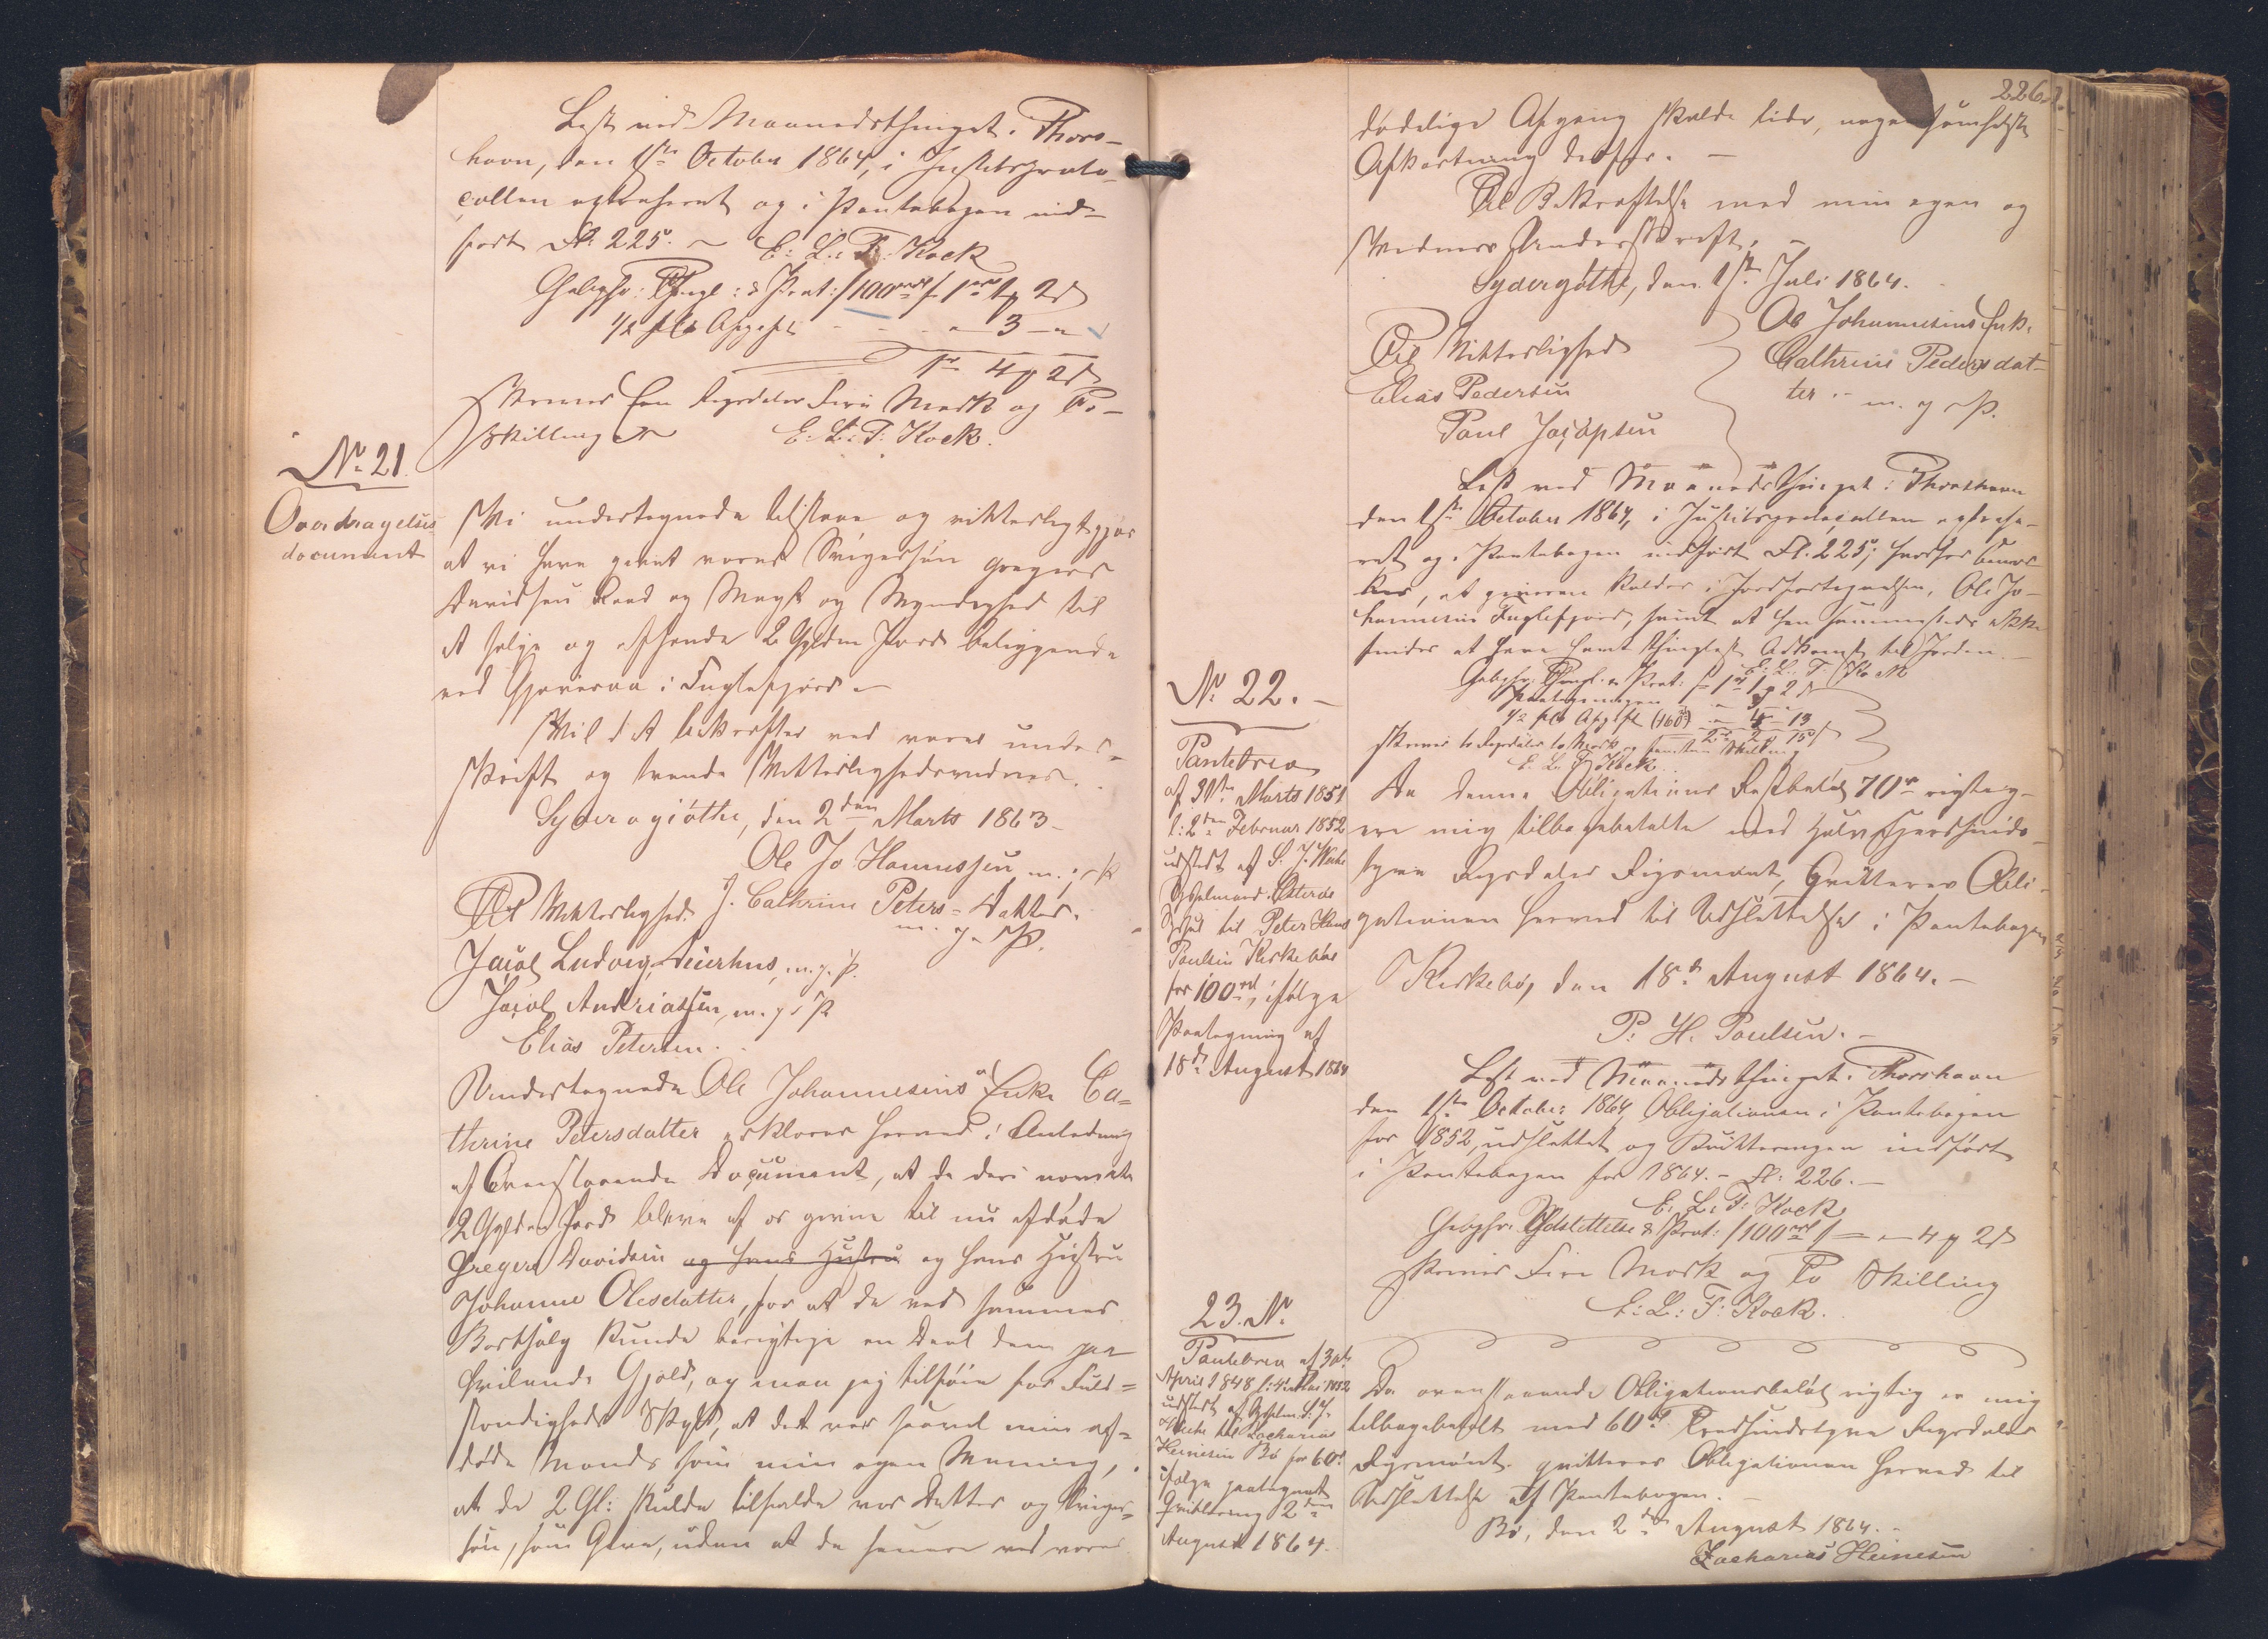 Læst ved Maanedsthinget i Thors-
havn, den 1ste October 1864, i Justitsproto-
collen extraheret og i Pantebogen ind-
ført Fl. 225. E: L: F: Kock
Gebyhr: Thingl: & Prot: /100rd/ 1rd 1 # 2 s
1/2 pCt Afgift - - - " 3 - "
1rd 4 # 2 s
skriver Een Rigsdaler Fire Mark og To
Skilling E: L: F: Kock.
No. 21.
Overdragelses-
document
Vi undertegnede tilstaae og vitterligtgjør
at vi have givet vores Svigersøn Gregers
Davidsen Raad og Magt og Myndighed til
at sælge og afhænde 2 Gylden Jord beliggende
ved Gjøveraa i Fuglefjord.
Vil d A bekræfter ved vores under-
skrift og tvende Vitterlighedsvidner.
Syderagiøthe, den 2den Marts 1863
Ole Jo Hannessen m. p
Til Vitterlighed J. Cathrine Peters-Datter.
m. g. P.
Jacob Ludvig m. g. P.
Jacob Andriassen, m. g. P
Elias Petersen.
Undertegnede Ole Johannesens Enke Ca-
thrine Petersdatter erklærer herved i Anledning
af Ovenstaaende Document, at de deri nævnte
2 Gylden Jord bleve af os givne til nu afdøde
Gregers Davidsen og hans Hustru og hans Hustru
Johanne Olesdatter, for at de ved sammes
Bortsalg kunde berigtige en Deel dem paa
hvilende Gjæld, og maa jeg tilføie for Fuld-
stændigheds Skyld, at det var saavel min af-
døde Mands som min egen Mening,
at de 2 Gl: skulde tilfalde vor Datter og Sviger-
søn, som Gave, uden at de senere ved vores
226.
dødelige Afgang skulde lide, nogensomhelst
Afkortning derfor. -
Til Bekræftelse med min egen og
Vidners Underskrift. -
Sydergøthe, den 1ste Juli 1864.
Ole Johannesens Enke
Cathrine Pedersdat-
ter. - m. g. P.
Til Vitterlighed
Elias Pedersen
Paul Jacobsen
Læst ved Maanedsthinget i Thorshavn
den 1ste October 1864, i Justitsprotocollen extrahe-
ret og i Pantebogen indført Fl. 225; hvorhos bemær-
kes, at giveren kaldes i Jordfortegnelsen, Ole Jo-
hannesen Fuglefjord, samt at han sammesteds ikke
findes at have havt thinglæst Adkomst til Jorden. -
E: L: F: Kock
Gebyhr: Thingl. & Prot: 1rd 1 # 2 s
1/2 pCt Afgift (160rd) " 4 - 13
2rd 2 # 15 s
skriver to Rigsdaler to Mark og femten Skilling
E. L. F. Kock.
No. 22. -
Pantebrev
af 31te Marts 1851
l: 2den Februar 1852
udstedt af S. J.
Østerde
til Peter Hans
Poulsen Kirkebøe
for 100rd, ifølge
Paategning af
18de August 1864
Da denne Obligations Restbeløb 70rd rigtig
ere mig tilbagebetalte med Halvfjerdsinds-
tyve Rigsdaler Rigsmønt, Qvitteres Obli-
gationen herved til Udslettelse i Pantebogen
Kirkebø, den 18de August 1864. -
P. H. Poulsen. -
Læst ved Maanedsthinget i Thorshavn
den 1ste October 1864, Obligationen i Pantebogen
for 1852, udslettet og Qvitteringen indført
i Pantebogen for 1864. - Fl: 226. -
E. L: F: Kock
Gebyhr: Udslettelse & Prot: /100rd/ = " 4 # 2 s
skriver Fire Mark og To Skilling
E: L: F: Kock.
23. No.
Pantebrev af 30te
April 1848 l: Mai 1852
udstedt af
til Zacharias
Heinesen Bø for 60rd
ifølge paategnet
Qvittering 2den
August 1864.
Da ovenstaaende Obligationsbeløb rigtig er mig
tilbagebetalt med 60rd Tredsindstyve Rigsdaler
Rigsmønt qvitteres Obligationen herved til
Udslettelse af Pantebogen. -
Bø, den 2den August 1864. -
Zacharias Heinesen